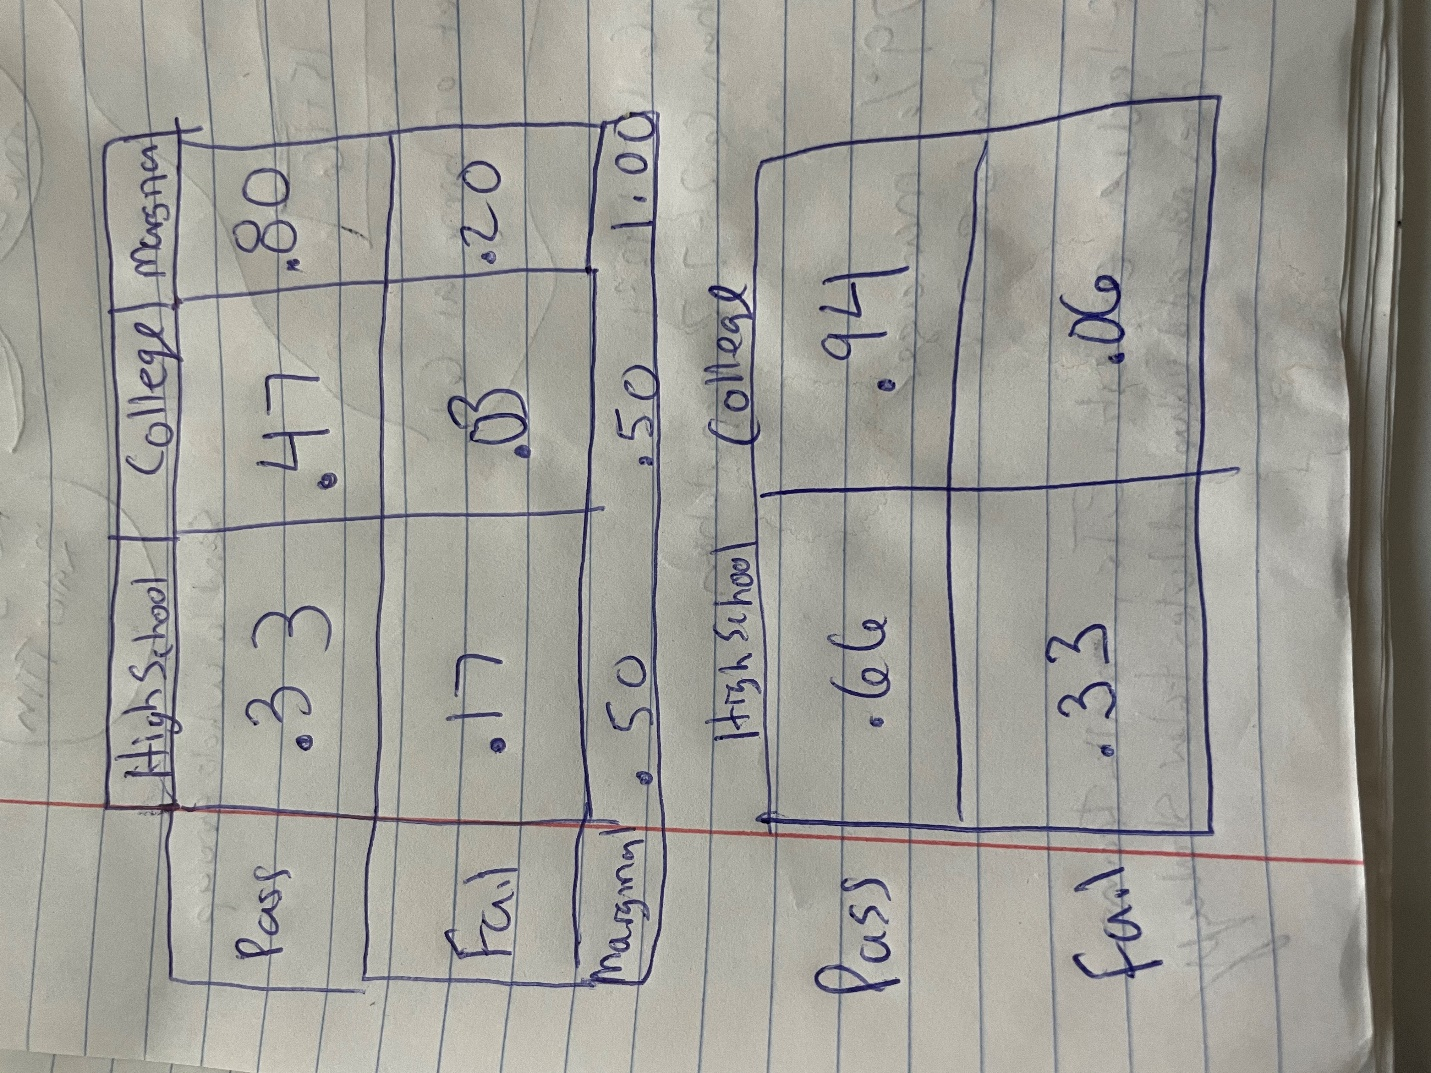 High School College Marginal
Pass .33 .47 .80
Fail .17 .03 .20
Marginal .50 .50 1.00
High School College
Pass .66 .94
Fail .33 .06